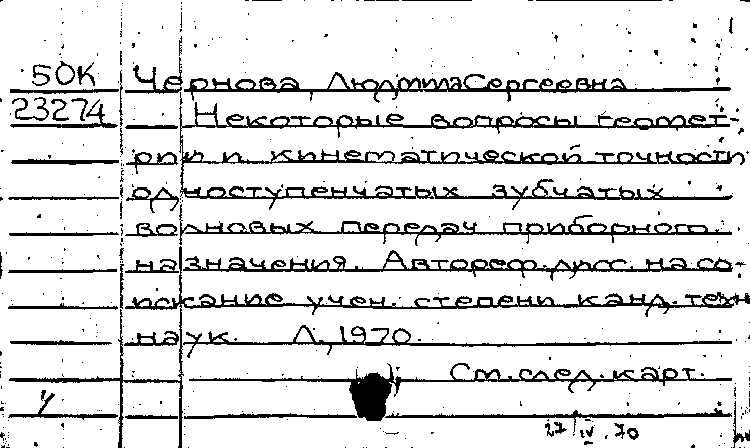 50К Чернова, Людмила Сергеевна
23274 Некоторые вопросы геомет-
рии и кинематической точности
одноступенчатых зубчатых
волновых передач приборного
назначения. Автореф. дисс. на со-
искание учен. степени канд. техн.
наук. Л., 1970.
См. след. карт.
27/IV.70